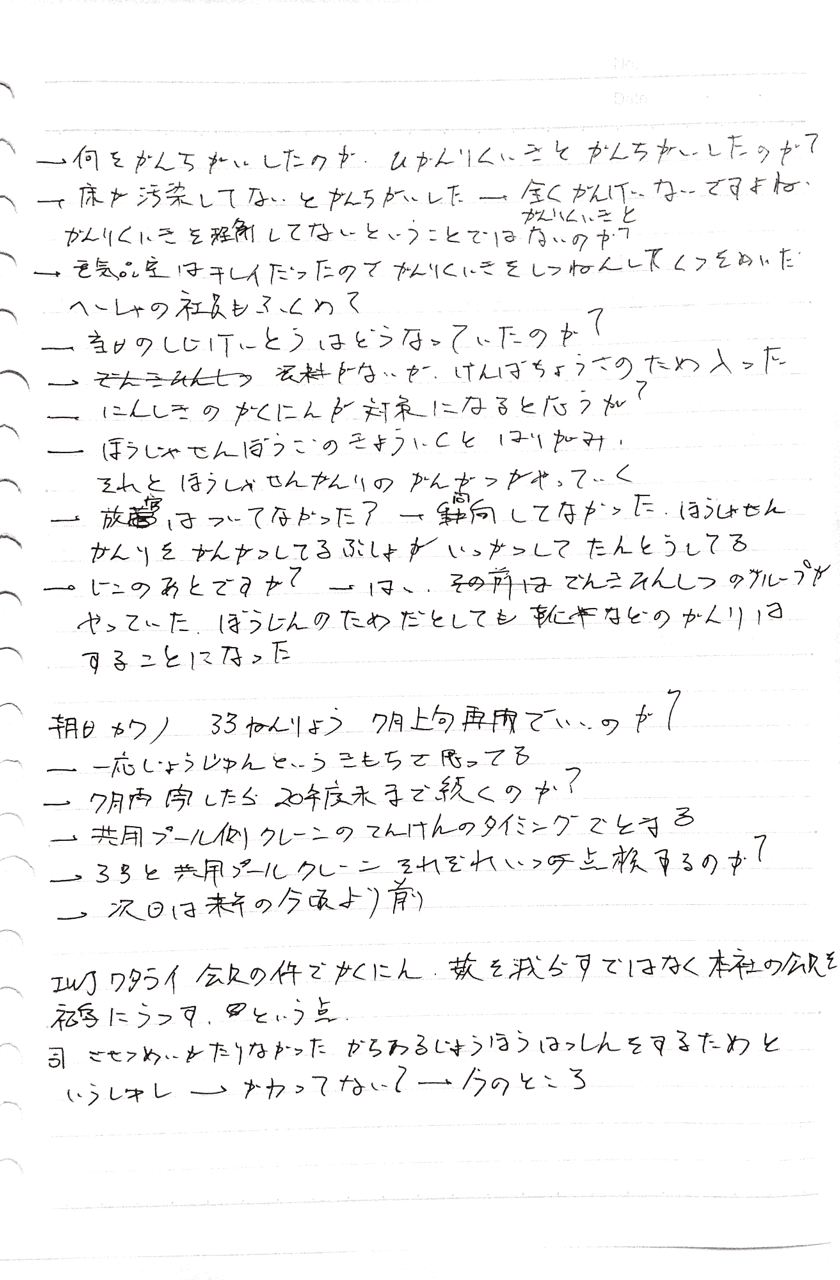 No.
Date
→ 何をかんちがいしたのか. ひかんりくいきとかんちがいしたのか?
→ 床が汚染してないとかんちがいした → 全くかんけいないですよね.
かんりくいきと
かんりくいきを していないということではないのか?
→ 電気品室はキレイだったのでかんりくいきをしつねんしてくつをぬいだ
へいしゃの社員もふくめて
→ 当日のしじけいとうはどうなっていたのか?
→ 資料がないが、げんばちょうさのため入った
→ にんしきのかくにんが対策になると思うが?
→ ほうしゃせんぼうごのきょういくとはりがみ.
それとほうしゃせんかんりのかんかつがやっていく
→ 放管はついてなかった? → 同向してなかった. ほうしゃせん
かんりをかんかつしてるぶしょがいっかつしてたんとうしてる
→ じこのあとですか? → はい. その前はでんきひんしつのグループが
やっていた. ぼうじんのためだとしても などのかんりは
することになった
朝日 カワノ 33ねんりょう 7月上旬再開でいいのか?
→ 一応じょうじゅんというきもちで思ってる
→ 7月再開したら20年度末まで続くのか?
→ 共用プール側クレーンのてんけんのタイミングでとまる
→ 3号と共用プールクレーンそれぞれいつ点検するのか?
→ 次回は来年の今頃より前
IWJ ワタライ 会見の件でかくにん. 数を減らすではなく本社の会見を
福島にうつす. という点.
司 せつめいがたりなかった からあるじょうほうはっしんをするためと
いうしゅし → かわってない? → 今のところ